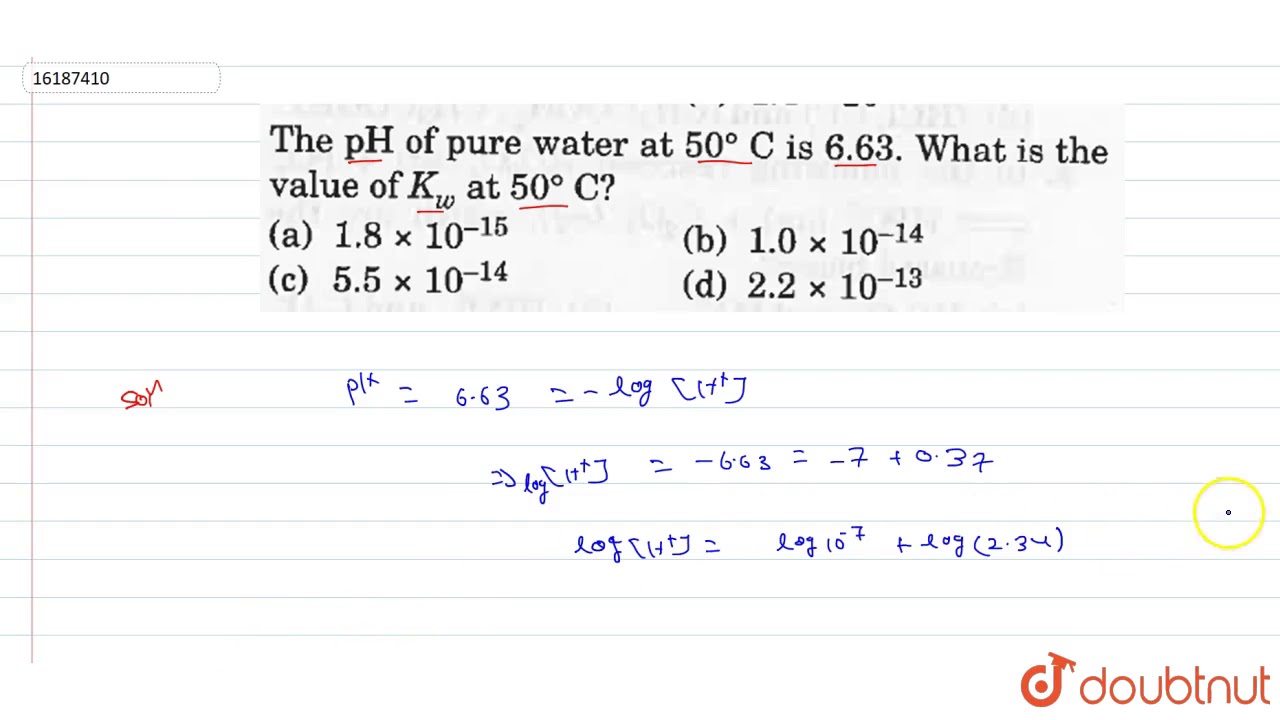 16187410
The pH of pure water at 50° C is 6.63. What is the
value of K_w at 50° C?
(a) 1.8 × 10⁻¹⁵ (b) 1.0 × 10⁻¹⁴
(c) 5.5 × 10⁻¹⁴ (d) 2.2 × 10⁻¹³
Solⁿ
pH = 6.63 = - log [H⁺]
⇒ log [H⁺] = - 6.63 = - 7 + 0.37
log [H⁺] = log 10⁻⁷ + log (2.34)
doubtnut